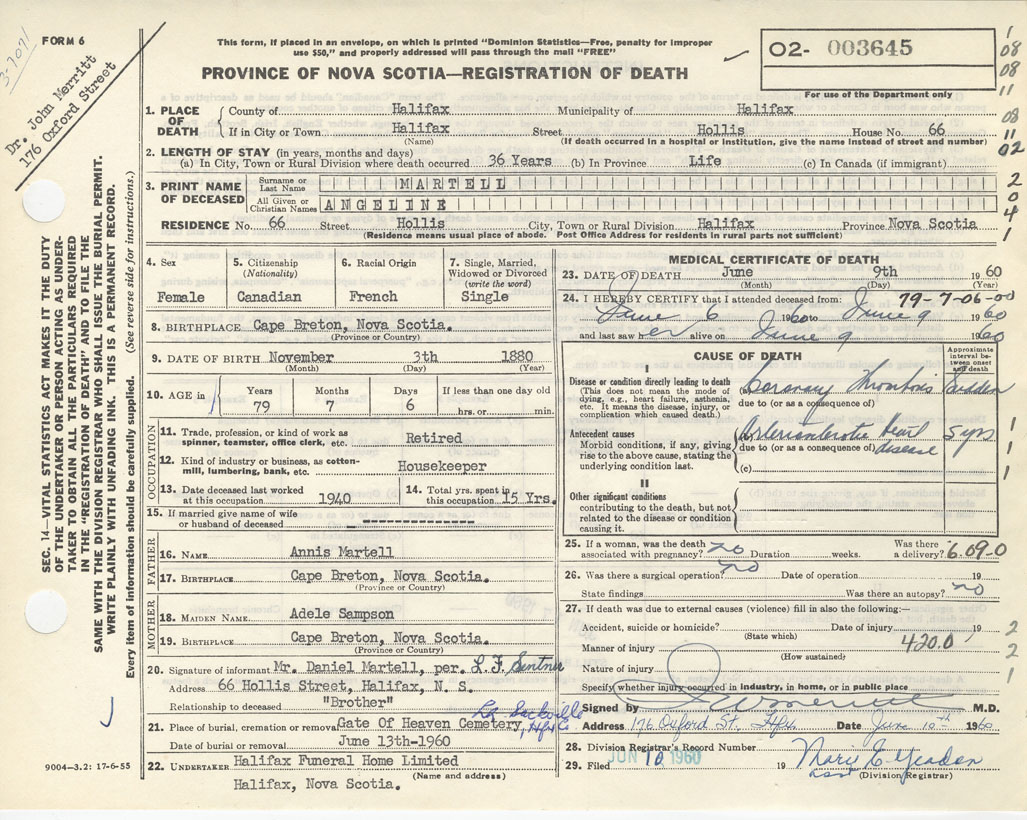 3-7071
Dr. John Merritt
176 Oxford Street
FORM 6
This form, if placed in an envelope, on which is printed "Dominion Statistics—Free, penalty for improper
use $50," and properly addressed will pass through the mail "FREE"
PROVINCE OF NOVA SCOTIA—REGISTRATION OF DEATH
02- 003645
For use of the Department only
SEC. 14—VITAL STATISTICS ACT MAKES IT THE DUTY
OF THE UNDERTAKER OR PERSON ACTING AS UNDER-
TAKER TO OBTAIN ALL THE PARTICULARS REQUIRED
IN THE "REGISTRATION OF DEATH" AND TO FILE THE
SAME WITH THE DIVISION REGISTRAR WHO SHALL ISSUE THE BURIAL PERMIT.
WRITE PLAINLY WITH UNFADING INK. THIS IS A PERMANENT RECORD.
Every item of information should be carefully supplied. (See reverse side for instructions.)
1. PLACE OF DEATH County of Halifax Municipality of Halifax
If in City or Town Halifax Street Hollis House No. 66
(Name) (If death occurred in a hospital or institution, give the name instead of street and number)
2. LENGTH OF STAY (in years, months and days)
(a) In City, Town or Rural Division where death occurred 36 Years (b) In Province Life (c) In Canada (if immigrant)
3. PRINT NAME OF DECEASED Surname or Last Name MARTELL
All Given or Christian Names ANGELINE
RESIDENCE No. 66 Street Hollis City, Town or Rural Division Halifax Province Nova Scotia
(Residence means usual place of abode. Post Office Address for residents in rural parts not sufficient)
08
08
11
08
11
02
2
0
4
1
4. Sex 5. Citizenship (Nationality) 6. Racial Origin 7. Single, Married, Widowed or Divorced (write the word)
Female Canadian French Single
8. BIRTHPLACE Cape Breton, Nova Scotia.
(Province or Country)
9. DATE OF BIRTH November 3th 1880
(Month) (Day) (Year)
10. AGE in Years Months Days If less than one day old
79 7 6 hrs. or min.
OCCUPATION
11. Trade, profession, or kind of work as spinner, teamster, office clerk, etc. Retired
12. Kind of industry or business, as cotton-mill, lumbering, bank, etc. Housekeeper
13. Date deceased last worked at this occupation 1940 14. Total yrs. spent in this occupation 15 Yrs.
15. If married give name of wife or husband of deceased
FATHER
16. NAME Annis Martell
17. BIRTHPLACE Cape Breton, Nova Scotia.
(Province or Country)
MOTHER
18. MAIDEN NAME Adele Sampson
19. BIRTHPLACE Cape Breton, Nova Scotia.
(Province or Country)
20. Signature of informant Mr. Daniel Martell, per.
Address 66 Hollis Street, Halifax, N. S.
Relationship to deceased "Brother"
21. Place of burial, cremation or removal Gate Of Heaven Cemetery, Lr Sackville, Hfx Co
Date of burial or removal June 13th-1960
22. UNDERTAKER Halifax Funeral Home Limited
(Name and address)
Halifax, Nova Scotia.
9004—3.2: 17-6-55
MEDICAL CERTIFICATE OF DEATH
23. DATE OF DEATH June 9th 1960
(Month) (Day) (Year)
24. I HEREBY CERTIFY that I attended deceased from: 79-7-06-00
June 6 1960 to June 9 1960
and last saw her alive on June 9 1960
CAUSE OF DEATH
Approximate interval between onset and death
I
Disease or condition directly leading to death
(This does not mean the mode of dying, e.g., heart failure, asthenia, etc. It means the disease, injury, or complication which caused death.)
(a) Coronary Thrombosis Sudden
due to (or as a consequence of)
Antecedent causes
Morbid conditions, if any, giving rise to the above cause, stating the underlying condition last.
(b) Arteriosclerotic heart disease 5 yrs
due to (or as a consequence of)
(c)
II
Other significant conditions
contributing to the death, but not related to the disease or condition causing it.
1
1
1
25. If a woman, was the death associated with pregnancy? no Duration weeks. Was there a delivery? 6.09.0
26. Was there a surgical operation? no Date of operation 19
State findings Was there an autopsy? no
27. If death was due to external causes (violence) fill in also the following:—
Accident, suicide or homicide? Date of injury 19
(State which)
Manner of injury 420.0
(How sustained)
Nature of injury
Specify whether injury occurred in industry, in home, or in public place
2
2
1
Signed by M.D.
Address 176 Oxford St., Hfx. Date June 10th 1960
28. Division Registrar's Record Number
29. Filed JUN 10 1960 19 Mary E Yeadon
(Division Registrar)